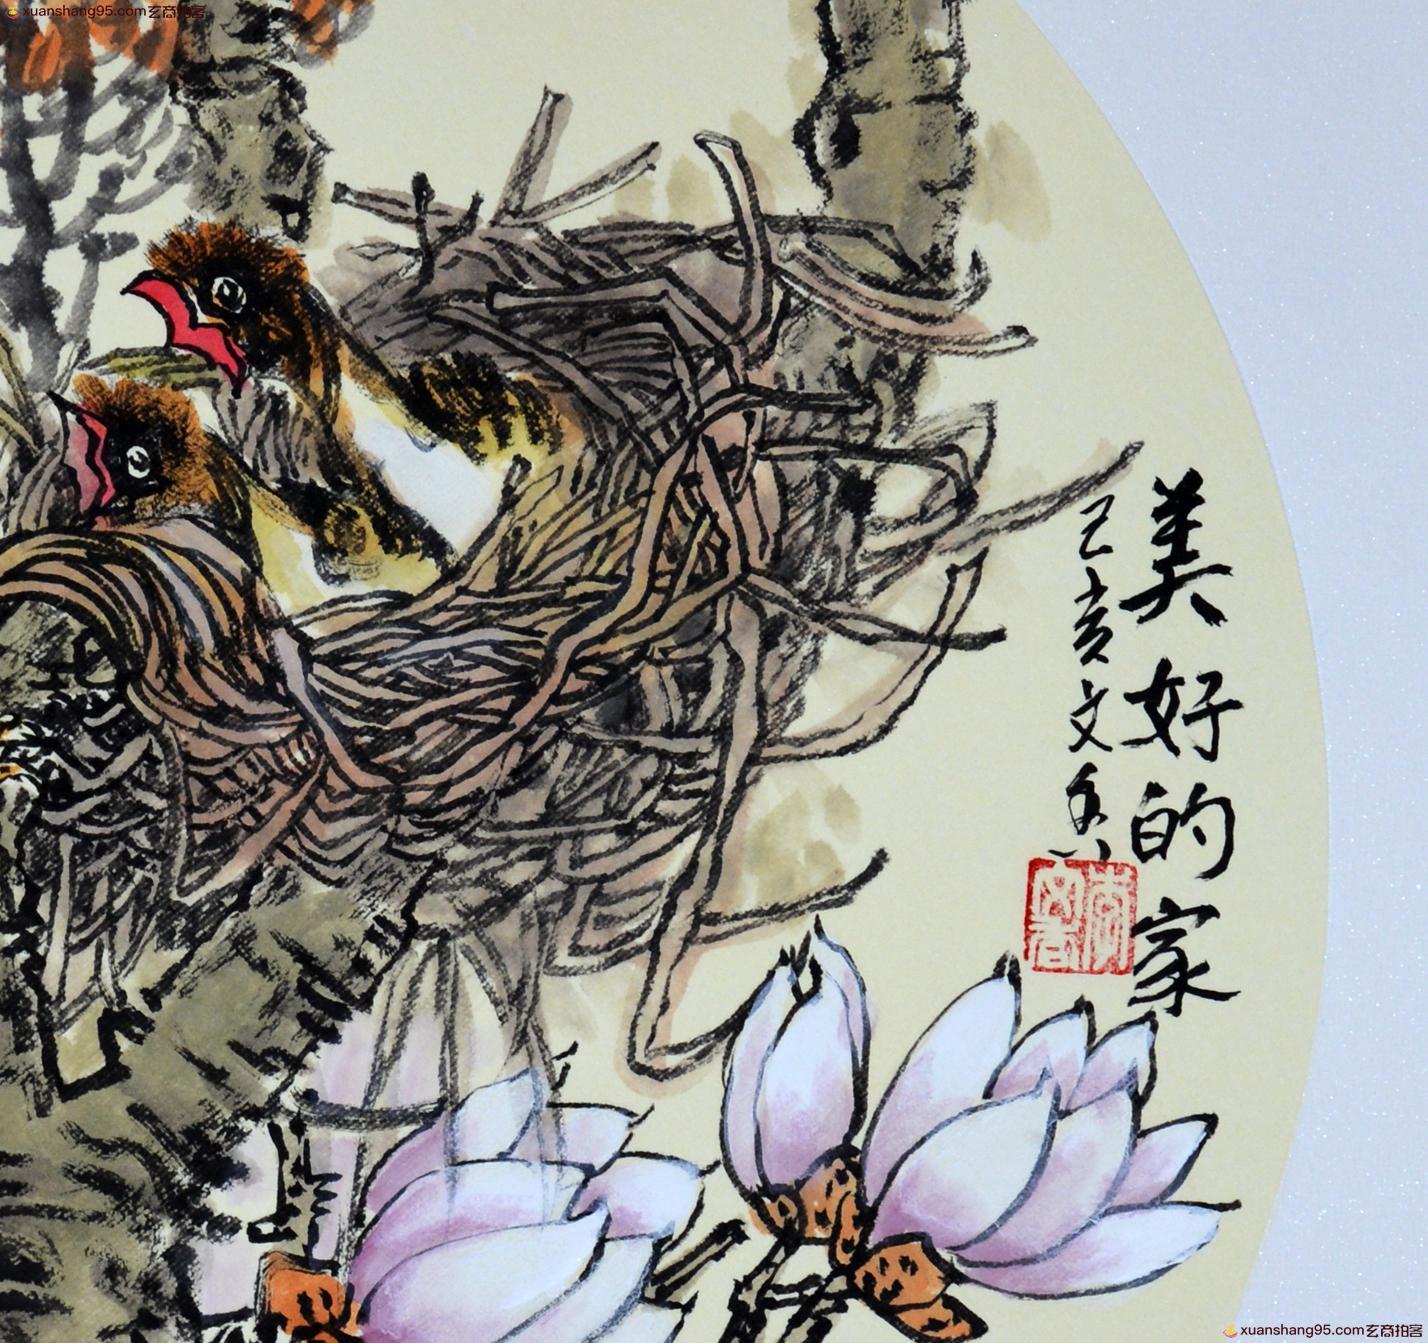 xuanshang95.com玄商拍客
美好的家
己亥文香
李文香
xuanshang95.com玄商拍客